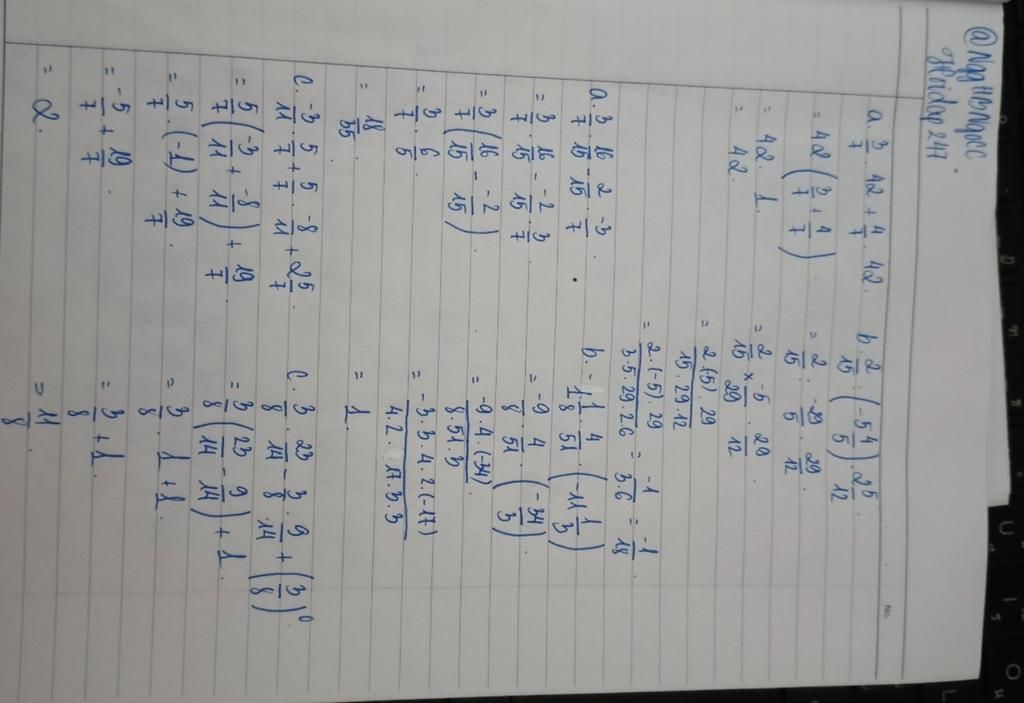 @NgọHCNgọcc
Hoidap247
No.
a. 3/7 . 42 + 4/7 . 42.
= 42 (3/7 + 4/7)
= 42. 1.
= 42.
b. 2/15 : (-5 4/5) . 2 5/12
= 2/15 : -29/5 . 29/12
= 2/15 × -5/29 . 29/12
= 2.(5).29/15.29.12
= 2.(-5).29/3.5.29.2.6 = -1/3.6 = -1/18
a. 3/7 . 16/15 - 2/15 . -3/7
= 3/7 . 16/15 - -2/15 . 3/7
= 3/7 (16/15 - -2/15)
= 3/7 . 6/5
= 18/35
b. -1 1/8 . 4/51 . (-11 1/3)
= -9/8 . 4/51 . (-34/3).
= -9.4.(-34)/8.51.3
= -3.3.4.2.(-17)/4.2.17.3.3
= 1.
c. -3/11 . 5/7 + 5/7 . -8/11 + 2 5/7.
= 5/7 (-3/11 + -8/11) + 19/7
= 5/7 . (-1) + 19/7.
= -5/7 + 19/7.
= 2.
c. 3/8 . 23/14 - 3/8 . 9/14 + (3/8)⁰
= 3/8 (23/14 - 9/14) + 1.
= 3/8 . 1 + 1.
= 3/8 + 1.
= 11/8.